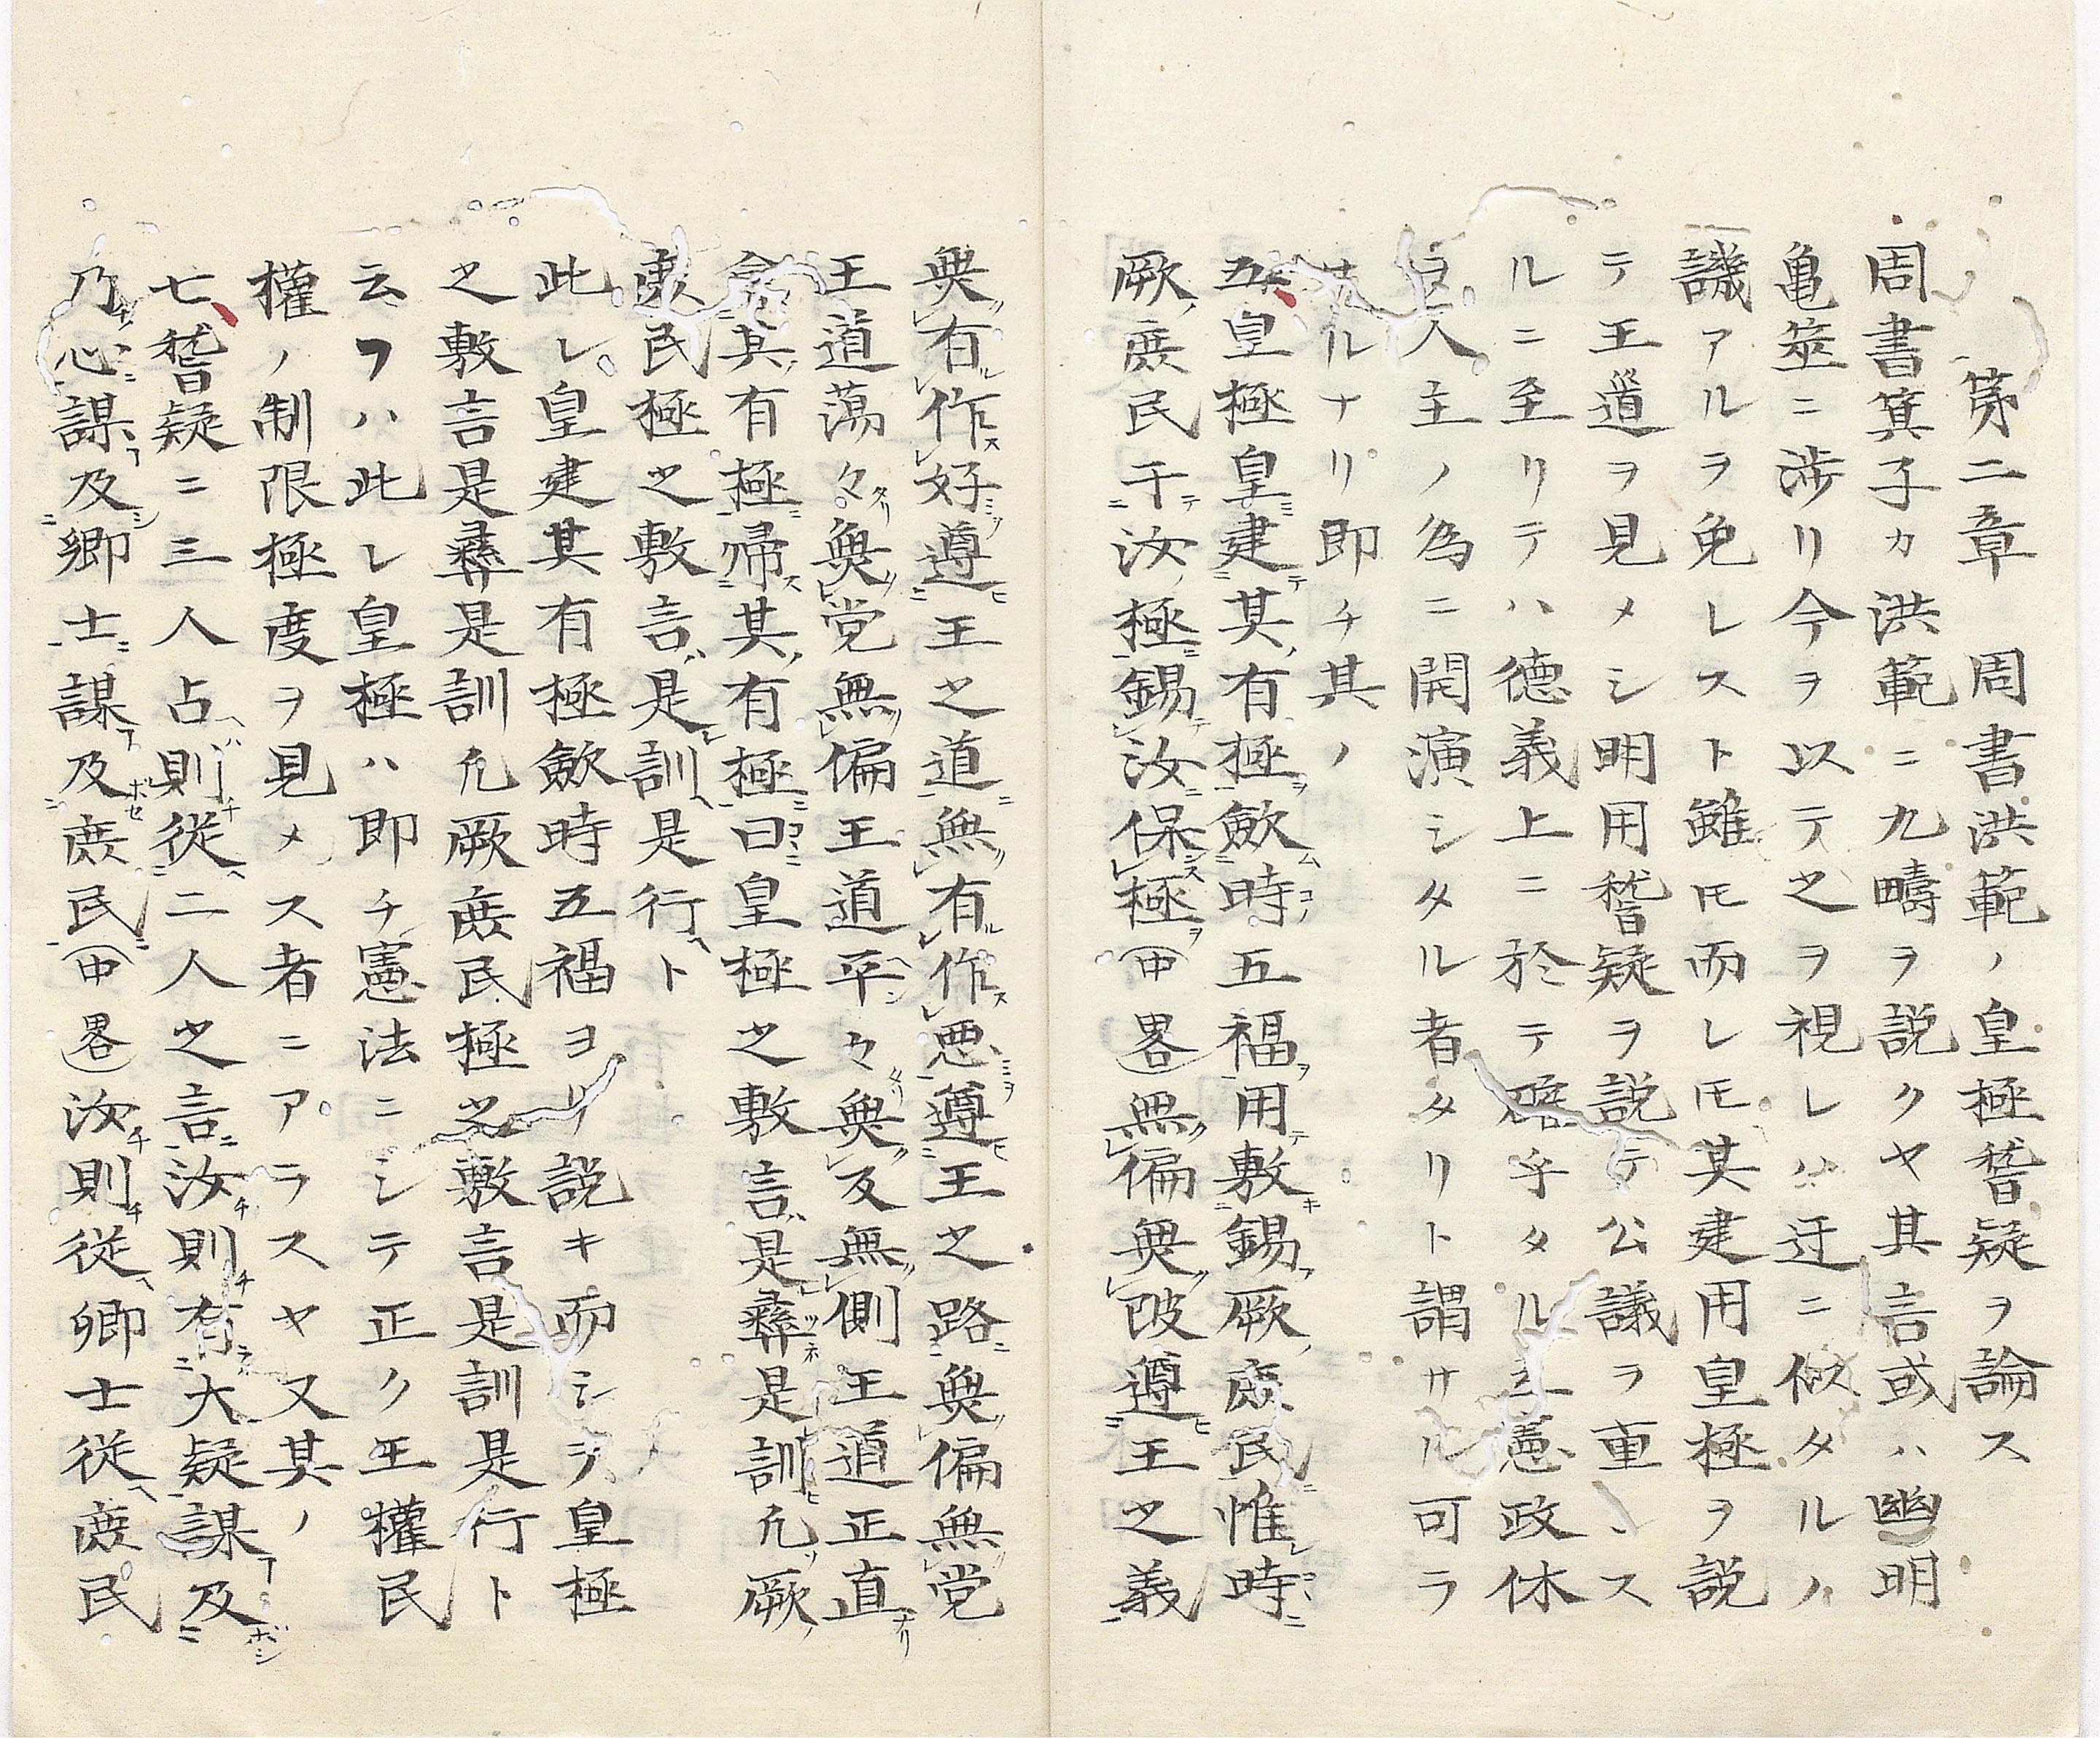 第二章　周書洪範ノ皇極稽疑ヲ論ス
周書箕子カ洪範ニ九疇ヲ説クヤ其言或ハ幽明
亀筮ニ渉リ今ヲ以テ之ヲ視レハ迂ニ似タルノ
譏アルヲ免レスト雖モ而レモ其建用皇極ヲ説
テ王道ヲ見メシ明用稽疑ヲ説テ公議ヲ重ンス
ルニ至リテハ徳義上ニ於テ確乎タル立憲政休
ヲ人主ノ為ニ開演シタル者タリト謂サル可ラ
サルナリ即チ其ノ
五皇極皇建其有極斂時五福用敷錫厥庶民惟時
厥庶民于汝極錫汝保極（中畧）無偏無陂遵王之義
無有作好遵王之道無有作悪遵王之路無偏無党
王道蕩々無党無偏王道平々無反無側王道正直
會其有極帰其有極曰皇極之敷言是彝是訓凢厥
庶民極之敷言是訓是行ト
此レ皇建其有極斂時五福ヨリ説キ而シテ皇極
之敷言是彝是訓凢厥庶民極之敷言是訓是行ト
云フハ此レ皇極ハ即チ憲法ニシテ正ク王權民
權ノ制限極度ヲ見メス者ニアラスヤ又其ノ
七稽疑ニ三人占則従二人之言汝則有大疑謀及
乃心謀及卿士謀及庶民（中畧）汝則従卿士従庶民